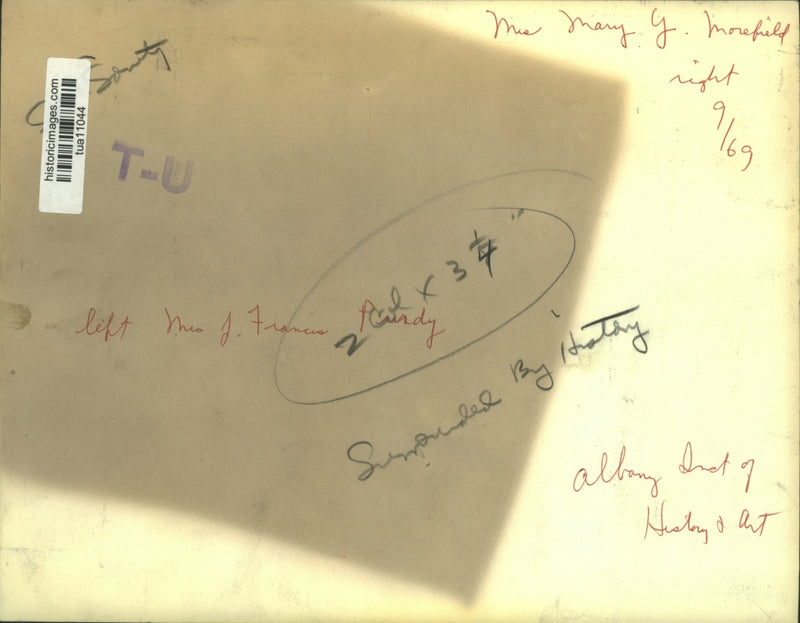 Mrs Mary G. Morefield
right
9/69
Society
historicimages.com
tua11044
T-U
2 Col x 3 1/4"
left Mrs J. Francis Purdy
Surrounded By History
Albany Inst of
History & Art